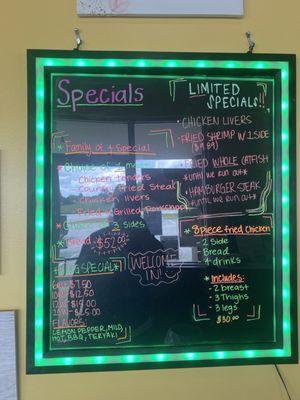 Specials
* Family of 4 Special
* Choice of 2 meat
- Chicken tenders
- Country Fried Steak
- Chicken livers
- Fried or Grilled Porkchop
* Choice of 3 sides
* Bread $52.00
WING SPECIAL
6pc - $7.50
10pc - $12.50
$25.00
FLAVORS:
LEMON PEPPER, MILD,
HOT, BBQ, TERYAKI
WELCOME
IN!
LIMITED
SPECIALS!!
* CHICKEN LIVERS
* FRIED SHRIMP W. 1 SIDE
* FRIED WHOLE CATFISH
*until we run out*
* HAMBURGER STEAK
*UNTIL WE RUN OUT*
* 8 piece fried chicken
- 2 Side
- Bread
- 4 drinks
* Includes:
- 2 breast
- 3 Thighs
- 3 legs
$30.00